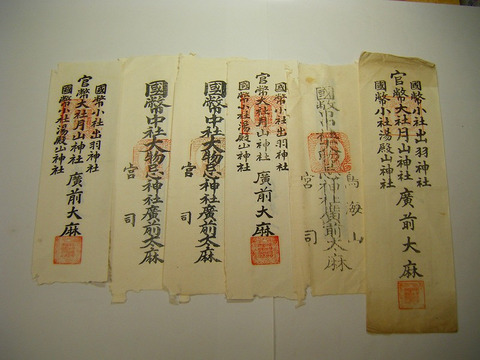 國幣小社出羽神社
官幣大社月山神社 廣前大麻
國幣小社湯殿山神社
鳥海山
國幣中社大物忌神社廣前大麻
宮司
國幣小社出羽神社
官幣大社月山神社 廣前大麻
國幣小社湯殿山神社
國幣中社大物忌神社廣前大麻
宮司
國幣中社大物忌神社廣前大麻
宮司
國幣小社出羽神社
官幣大社月山神社 廣前大麻
國幣小社湯殿山神社